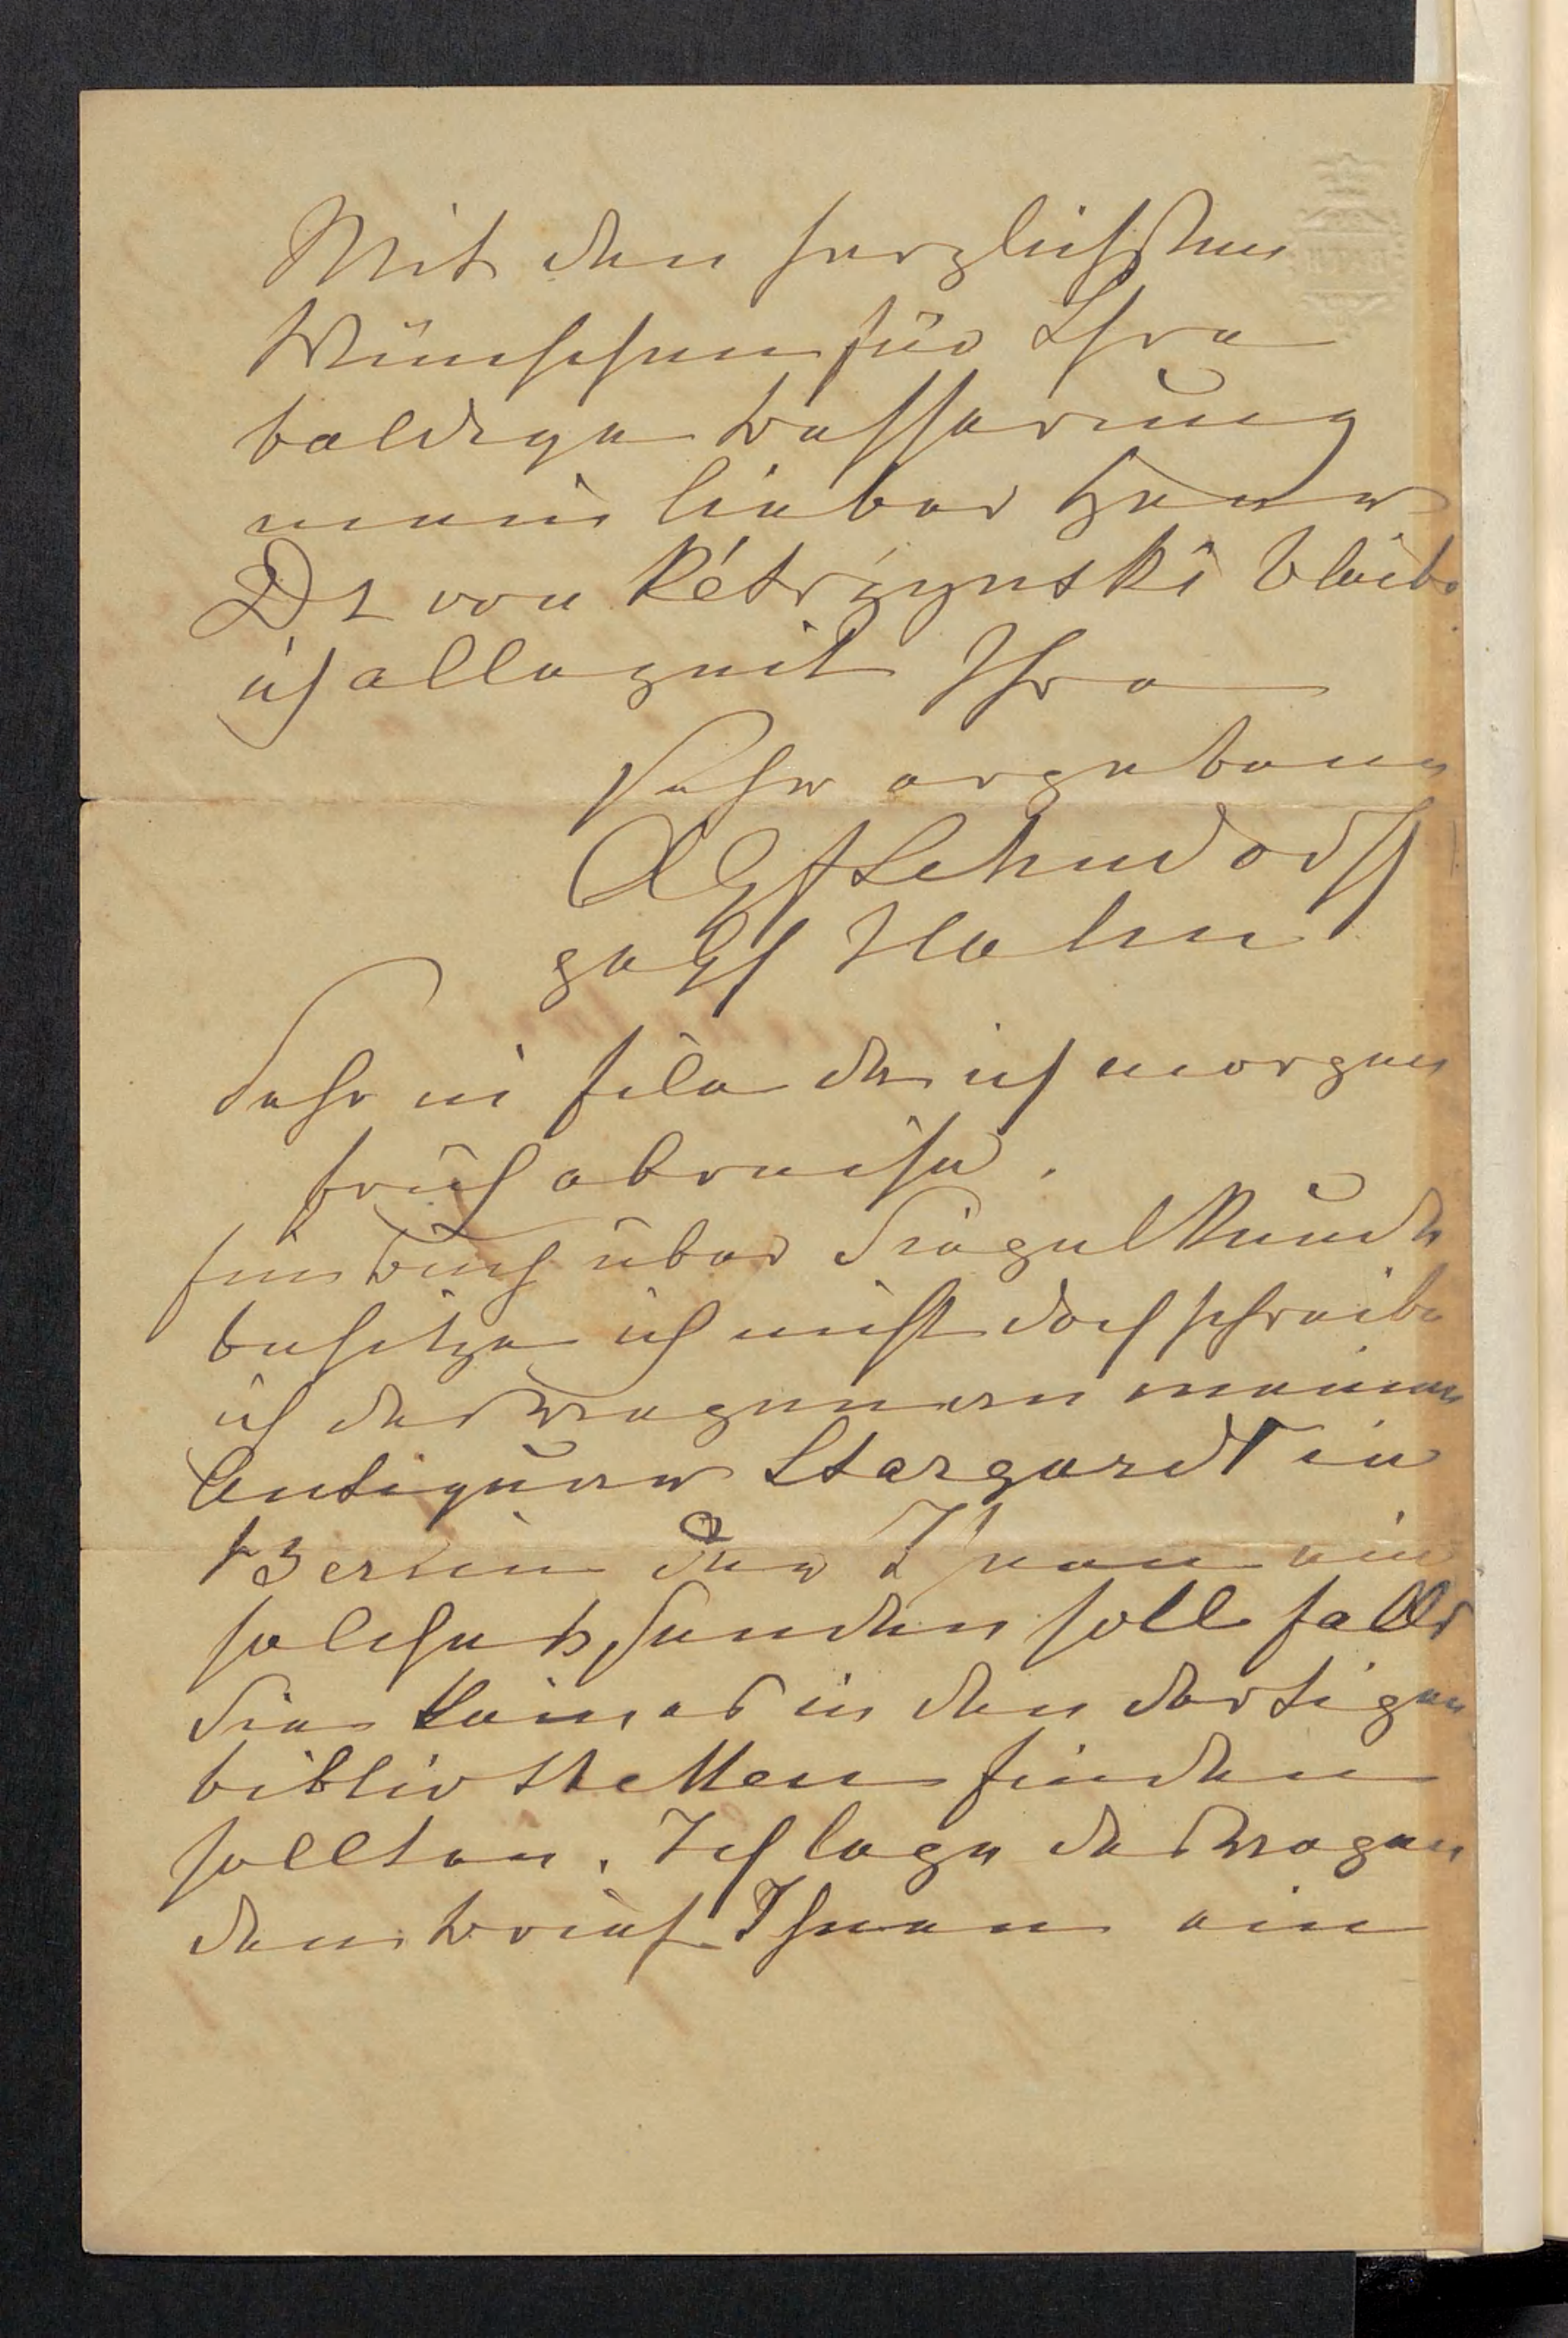 Mit den herzlichsten
Wünschen für Ihre
baldige Besserung
mein lieber Herr
Dr von Kétrzynski bleibe
ich allezeit Ihre
sehr ergebene
A Gf Lehndorff
geb Gf Hahn
Sehr in Eile da ich morgen
früh abreise.
Ein Buch über Siegelkunde
besitze ich nicht doch schreibe
ich deswegen an meinen
Antiquar Stargardt in
Berlin der Ihnen ein
solches senden soll falls
Sie keines in den dortigen
bibliotheken finden
sollten. Ich lege deswegen
den Brief Ihnen ein